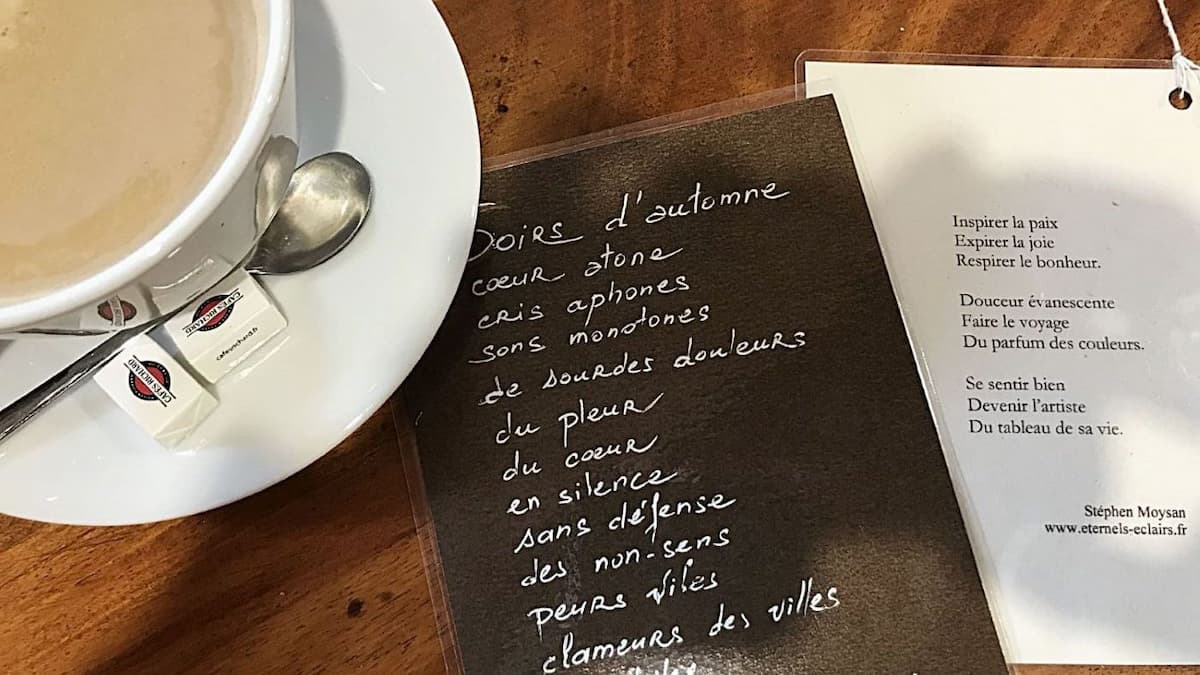 Soirs d'automne
coeur atone
cris aphones
sons monotones
de sourdes douleurs
du pleur
du coeur
en silence
sans défense
des non-sens
peurs viles
clameurs des villes
Inspirer la paix
Expirer la joie
Respirer le bonheur.
Douceur évanescente
Faire le voyage
Du parfum des couleurs.
Se sentir bien
Devenir l'artiste
Du tableau de sa vie.
Stéphen Moysan
www.eternels-eclairs.fr
CAFÉS RICHARD
cafesrichard.fr
CAFÉS RICHARD